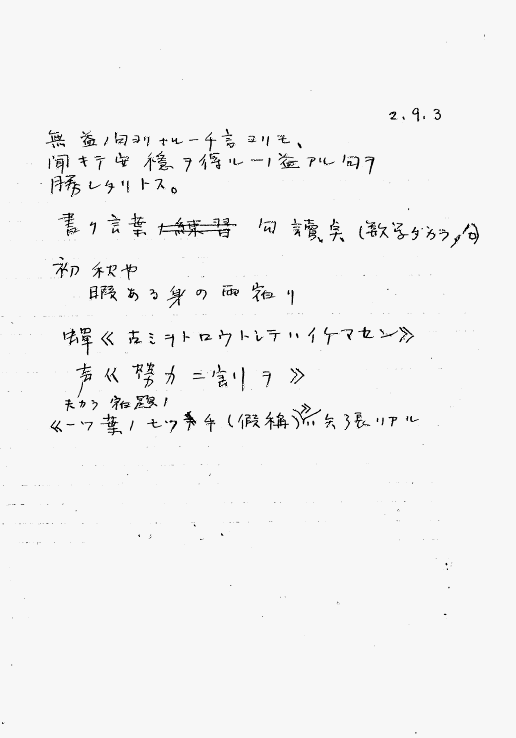 2.9.3
無益ノ句ヨリナル一千言ヨリモ、
聞キテ安穏ヲ得ル一ノ益アル句ヲ
勝レタリトス。
書ク言葉 練習 句読点(数学ダカラ,句)
初秋や
暇ある身の雨宿り
蝉《古ミヲトロウトシテハイケマセン》
声《努力ニ割リヲ》
夫カラ宿題ノ
《一ツ葉ノモツ手(仮称)》ハ矢張リアル